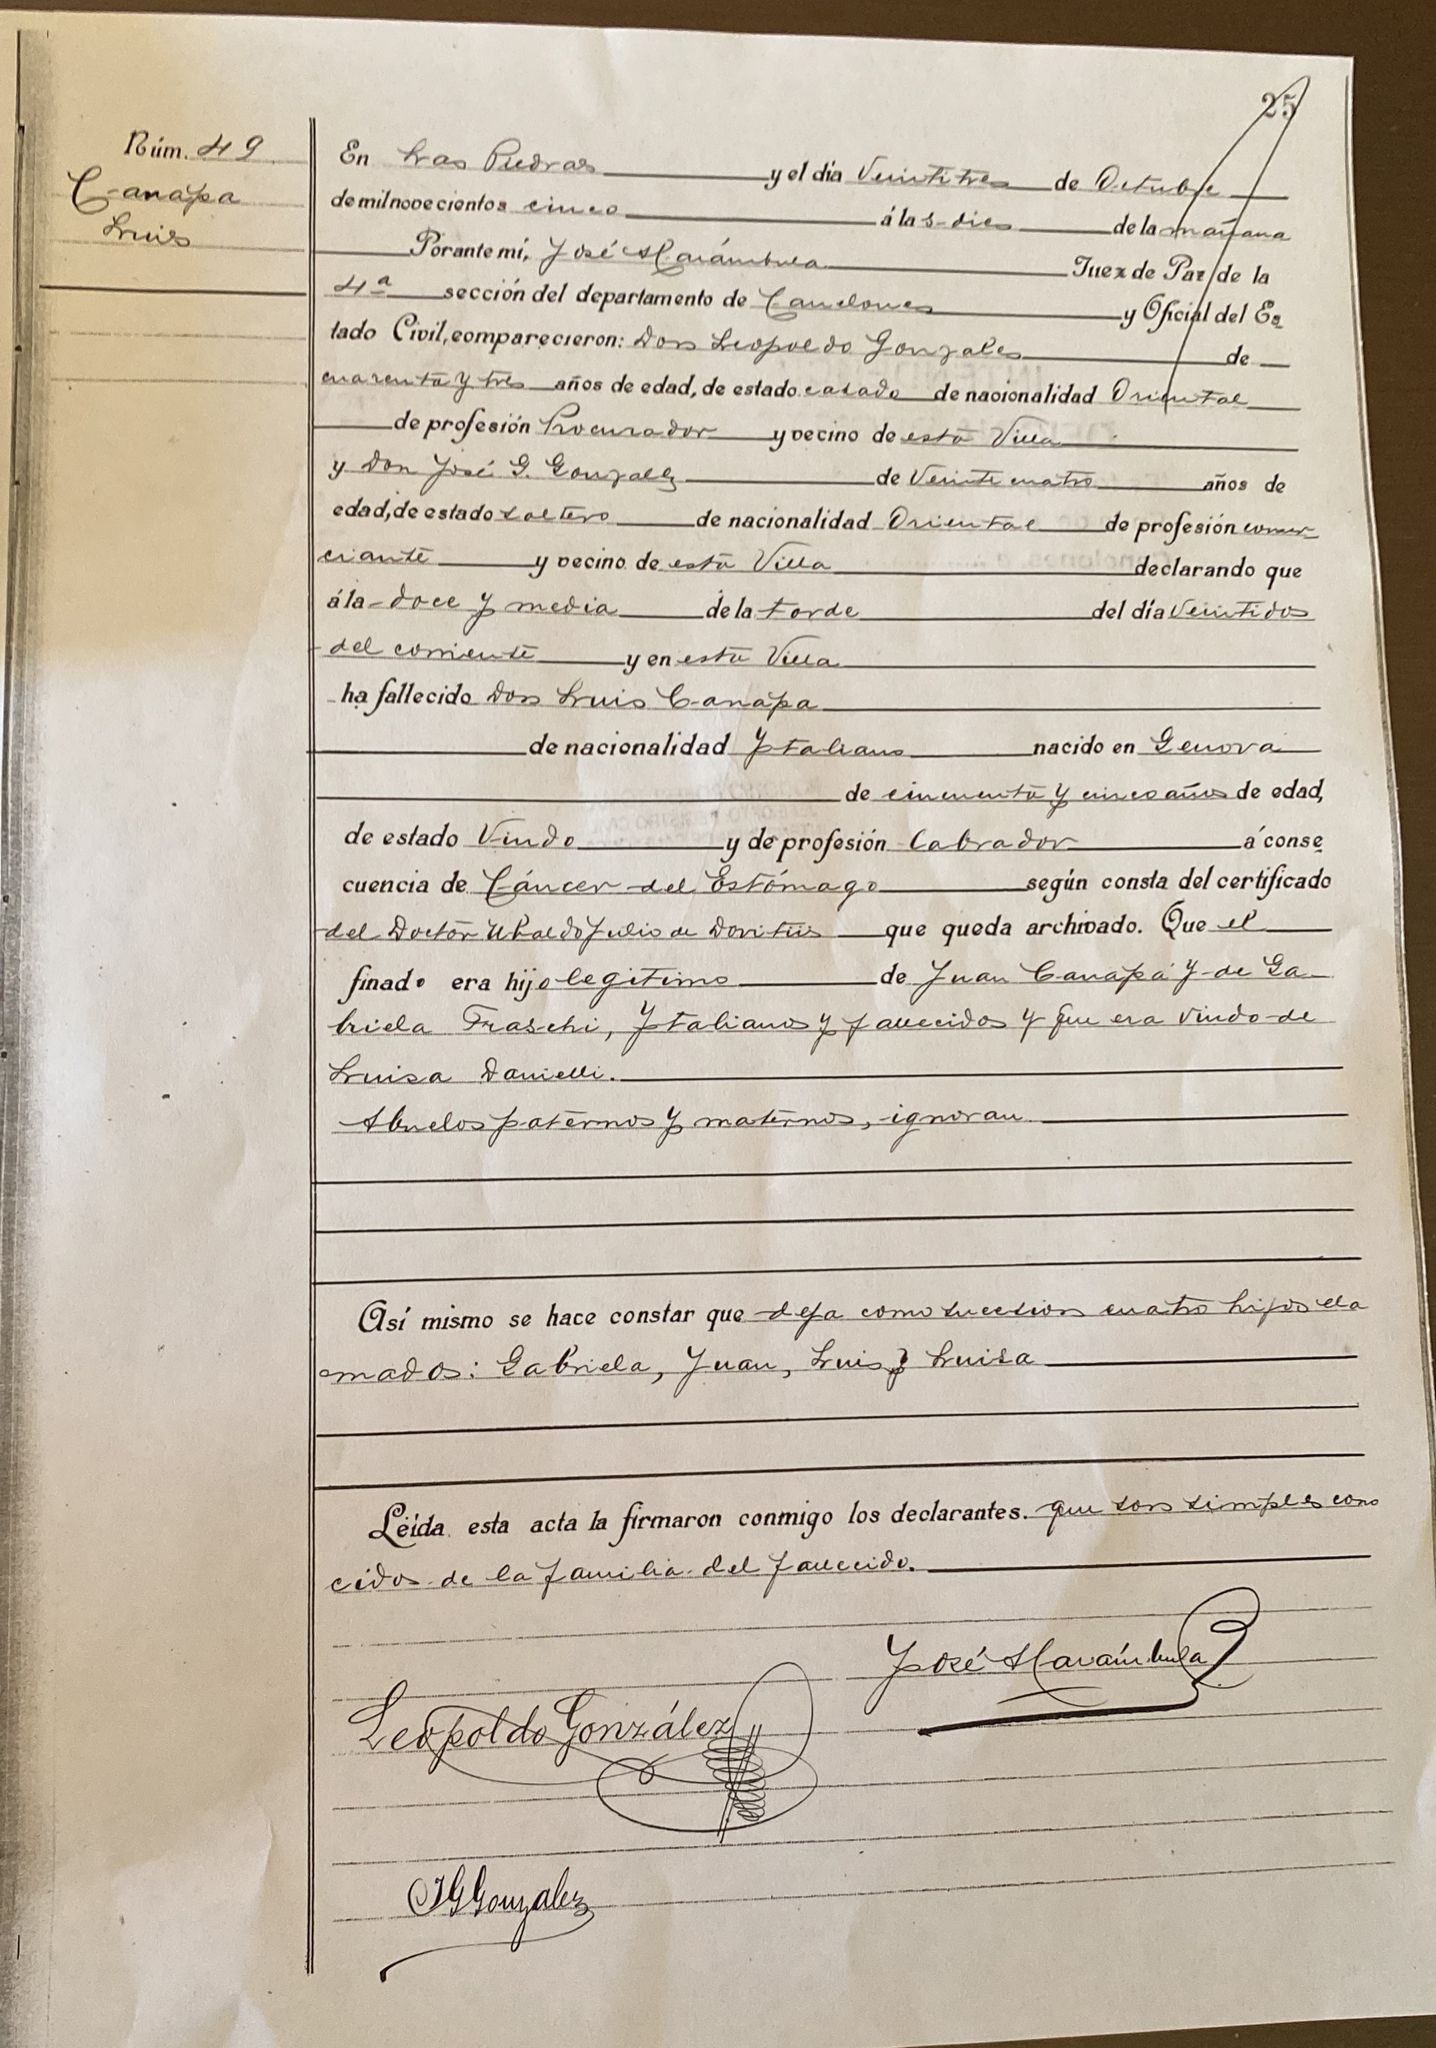 25
Núm. 49
Canapa
Luis
En Las Piedras y el día Veintitres de Octubre
de mil novecientos cinco á las dies de la mañana
Por ante mí, José Harámbula Juez de Paz de la
4ª sección del departamento de Canelones y Oficial del Es
tado Civil, comparecieron: Don Leopoldo Gonzales de
cuarenta y tres años de edad, de estado casado de nacionalidad Oriental
de profesión Procurador y vecino de esta Villa
y Don José G. Gonzalez de Veinte cuatro años de
edad, de estado soltero de nacionalidad Oriental de profesión comer
ciante y vecino de esta Villa declarando que
á la doce y media de la tarde del día Veintidos
del corriente y en esta Villa
ha fallecido Don Luis Canapa
de nacionalidad Ytaliano nacido en Genova
de cincuenta y cinco años de edad,
de estado Viudo y de profesión Labrador á conse
cuencia de Cáncer del Estómago según consta del certificado
del Doctor Ubaldo Julio de Dovitiis que queda archivado. Que el
finado era hijo legitimo de Juan Canapa y de Ga
briela Fraschi, Ytalianos y fallecidos y que era viudo de
Luisa Danielli.
Abuelos paternos y maternos, ignoran
Así mismo se hace constar que deja como sucesion cuatro hijos lla
mados: Gabriela, Juan, Luis y Luisa
Leída esta acta la firmaron conmigo los declarantes. que son simples cono
cidos de la familia del fallecido.
José Harámbula
Leopoldo González
JGGonzalez